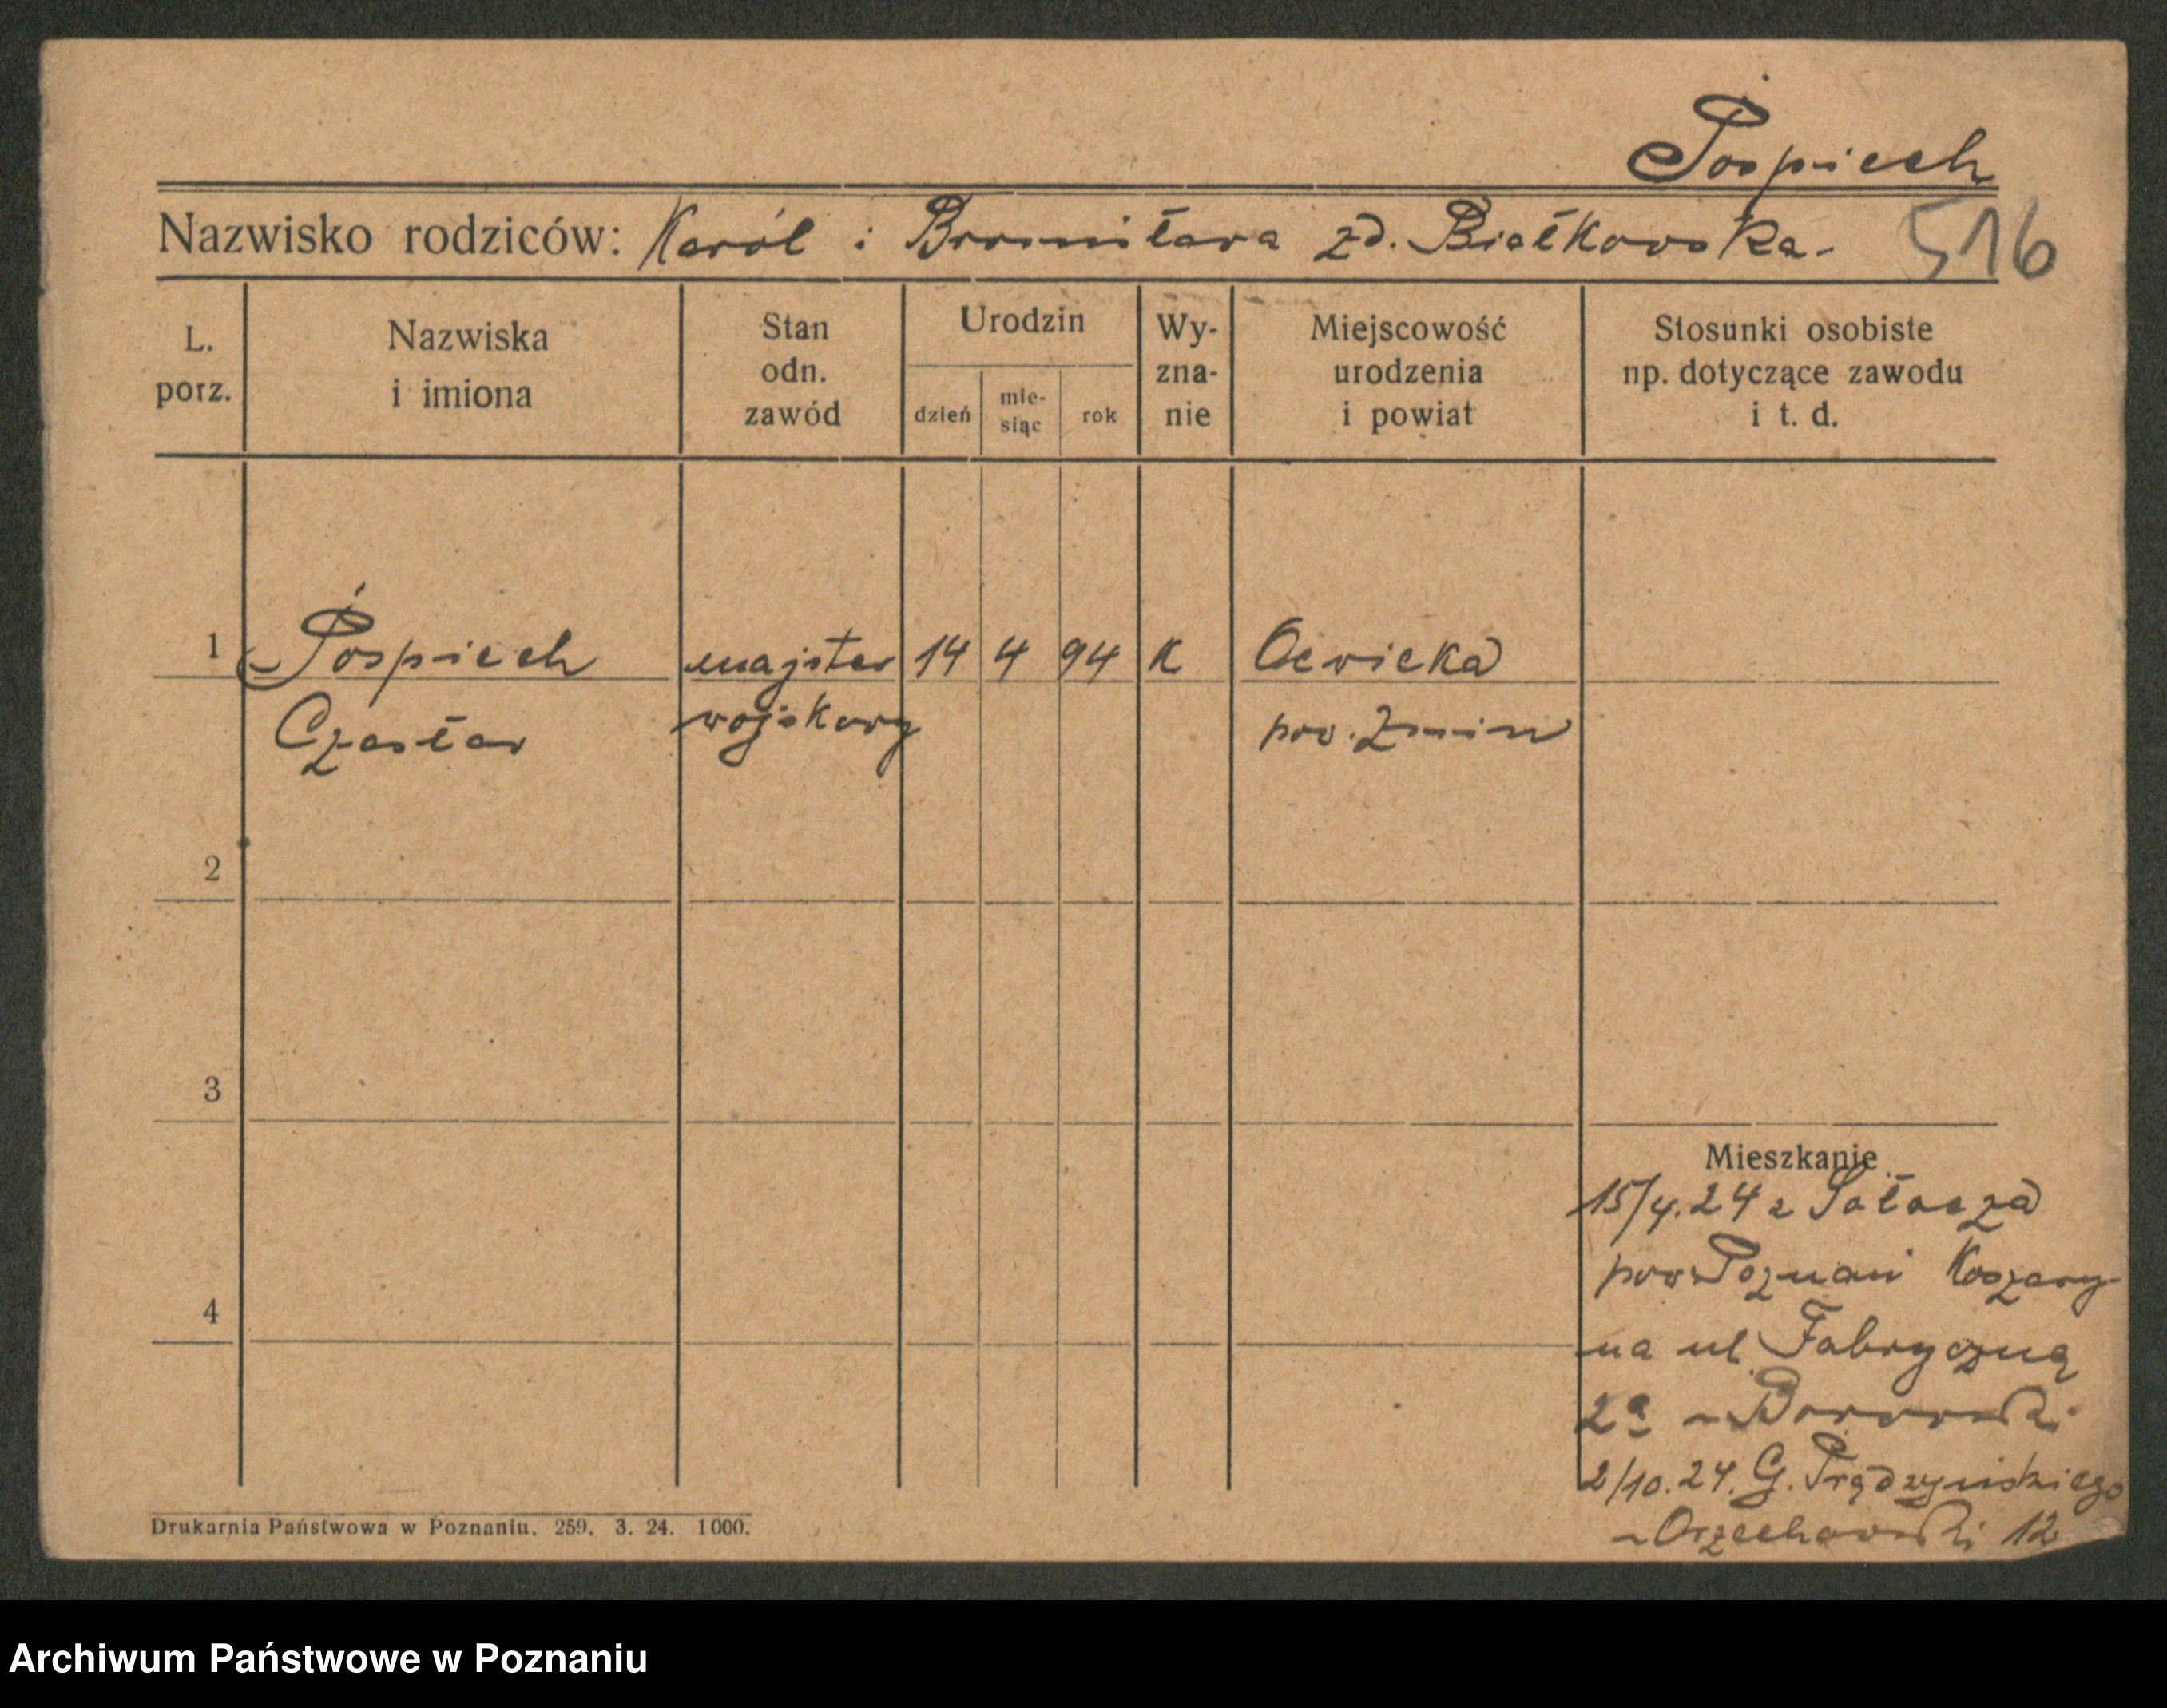 Pospiech
Nazwisko rodziców: Karól i Bronisława zd. Białkowska - 516
L. porz.
Nazwiska i imiona
Stan odn. zawód
Urodzin
dzień
mie-siąc
rok
Wy-zna-nie
Miejscowość urodzenia i powiat
Stosunki osobiste np. dotyczące zawodu i t. d.
1 Pospiech majster 14 4 94 K Ocwieka
Czesław wojskowy pow. Żnin
2
3
Mieszkanie
15/4.24 z Sołacza
pow. Poznań Koszary
4
na ul. Fabryczną
2a - Borowski
2/10.24. G. Prądzyńskiego
- Orzechowski 12
Drukarnia Państwowa w Poznaniu. 259. 3. 24. 1000.
Archiwum Państwowe w Poznaniu